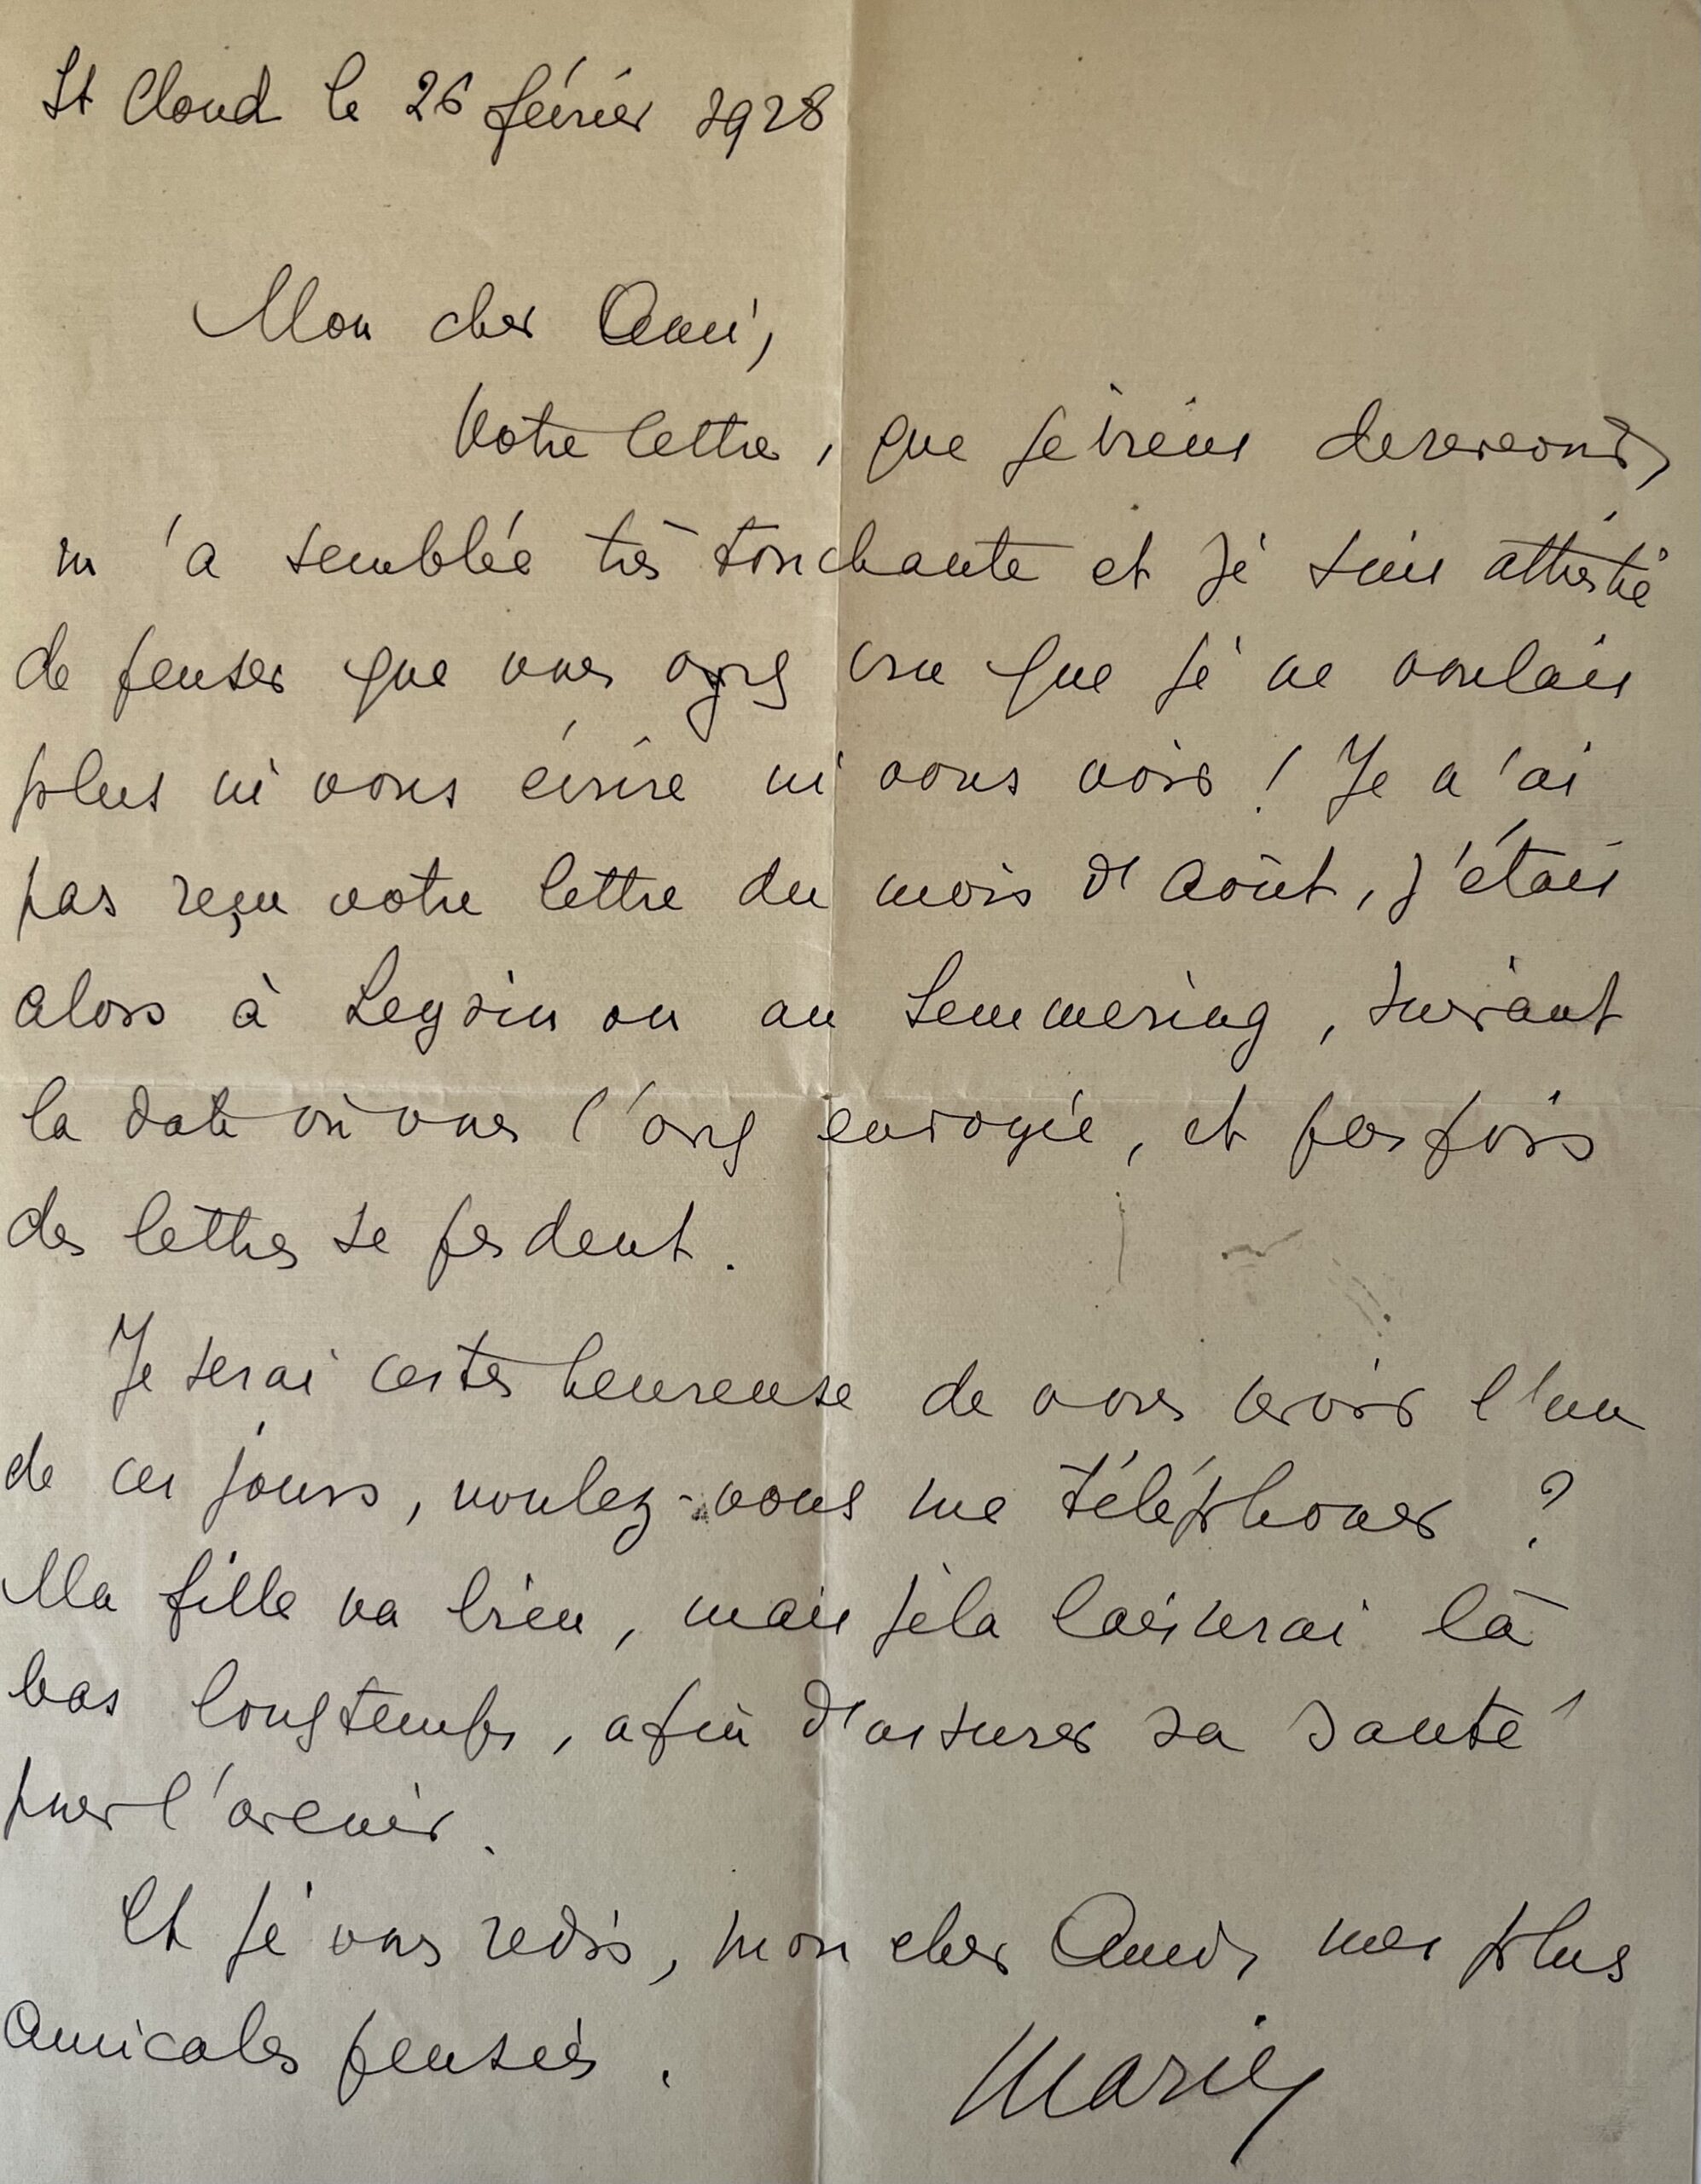 St Cloud le 26 février 1928
Mon cher Ami,
Votre lettre, que je viens de recevoir,
m'a semblée très touchante et je suis attristée
de penser que vous ayez cru que je ne voulais
plus ni vous écrire ni vous voir ! Je n'ai
pas reçu votre lettre du mois d'août, j'étais
alors à Leysin ou au Semmering, suivant
la date où vous l'avez envoyée, et parfois
des lettres se perdent.
Je serai certes heureuse de vous revoir l'un
de ces jours, voulez-vous me téléphoner ?
Ma fille va bien, mais je la laisserai là
bas longtemps, afin d'assurer sa santé
pour l'avenir.
Et je vous redis, mon cher Ami, mes plus
amicales pensées.